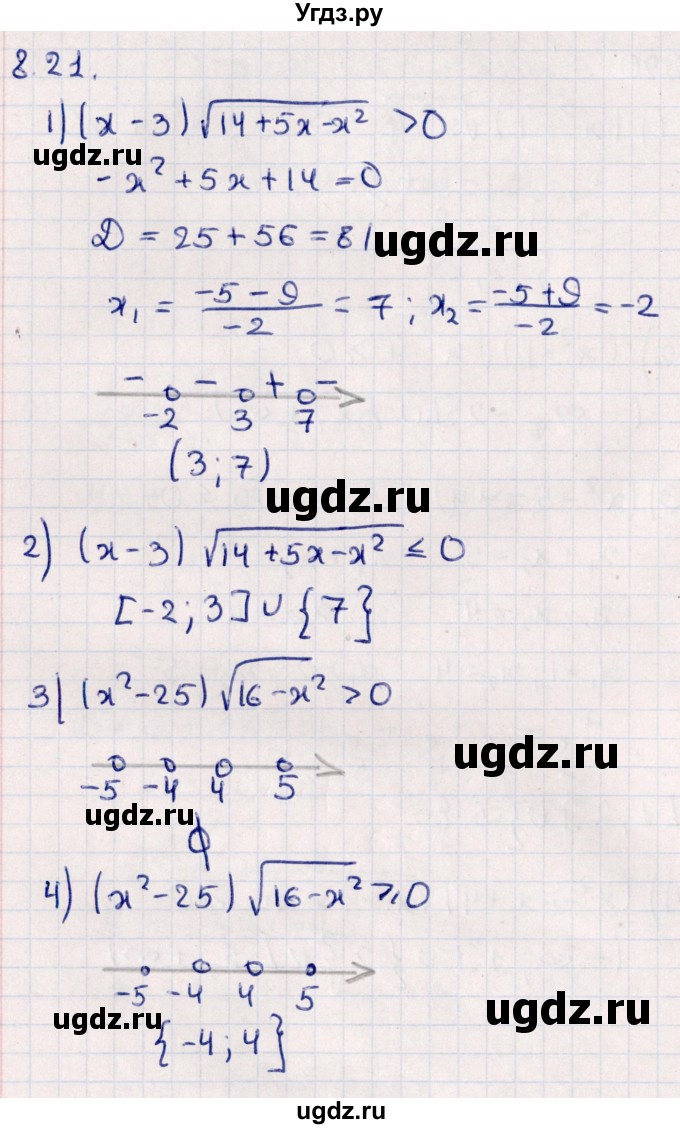 Угдз.ру
8.21.
1) (x-3)√(14+5x-x²) >0
ugdz.ru
-x²+5x+14=0
D = 25+56=81
ugdz.ru
x₁ = (-5-9)/(-2) = 7; x₂ = (-5+9)/(-2) = -2
- - + -
-2 3 7
(3;7)
ugdz.ru
2) (x-3)√(14+5x-x²) ≤ 0
[-2;3]∪{7}
3) (x²-25)√(16-x²) >0
ugdz.ru
-5 -4 4 5
ugdz.ru
∅
4) (x²-25)√(16-x²) ≥ 0
-5 -4 4 5
ugdz.ru
ugdz.ru
{-4;4}
ugdz.ru